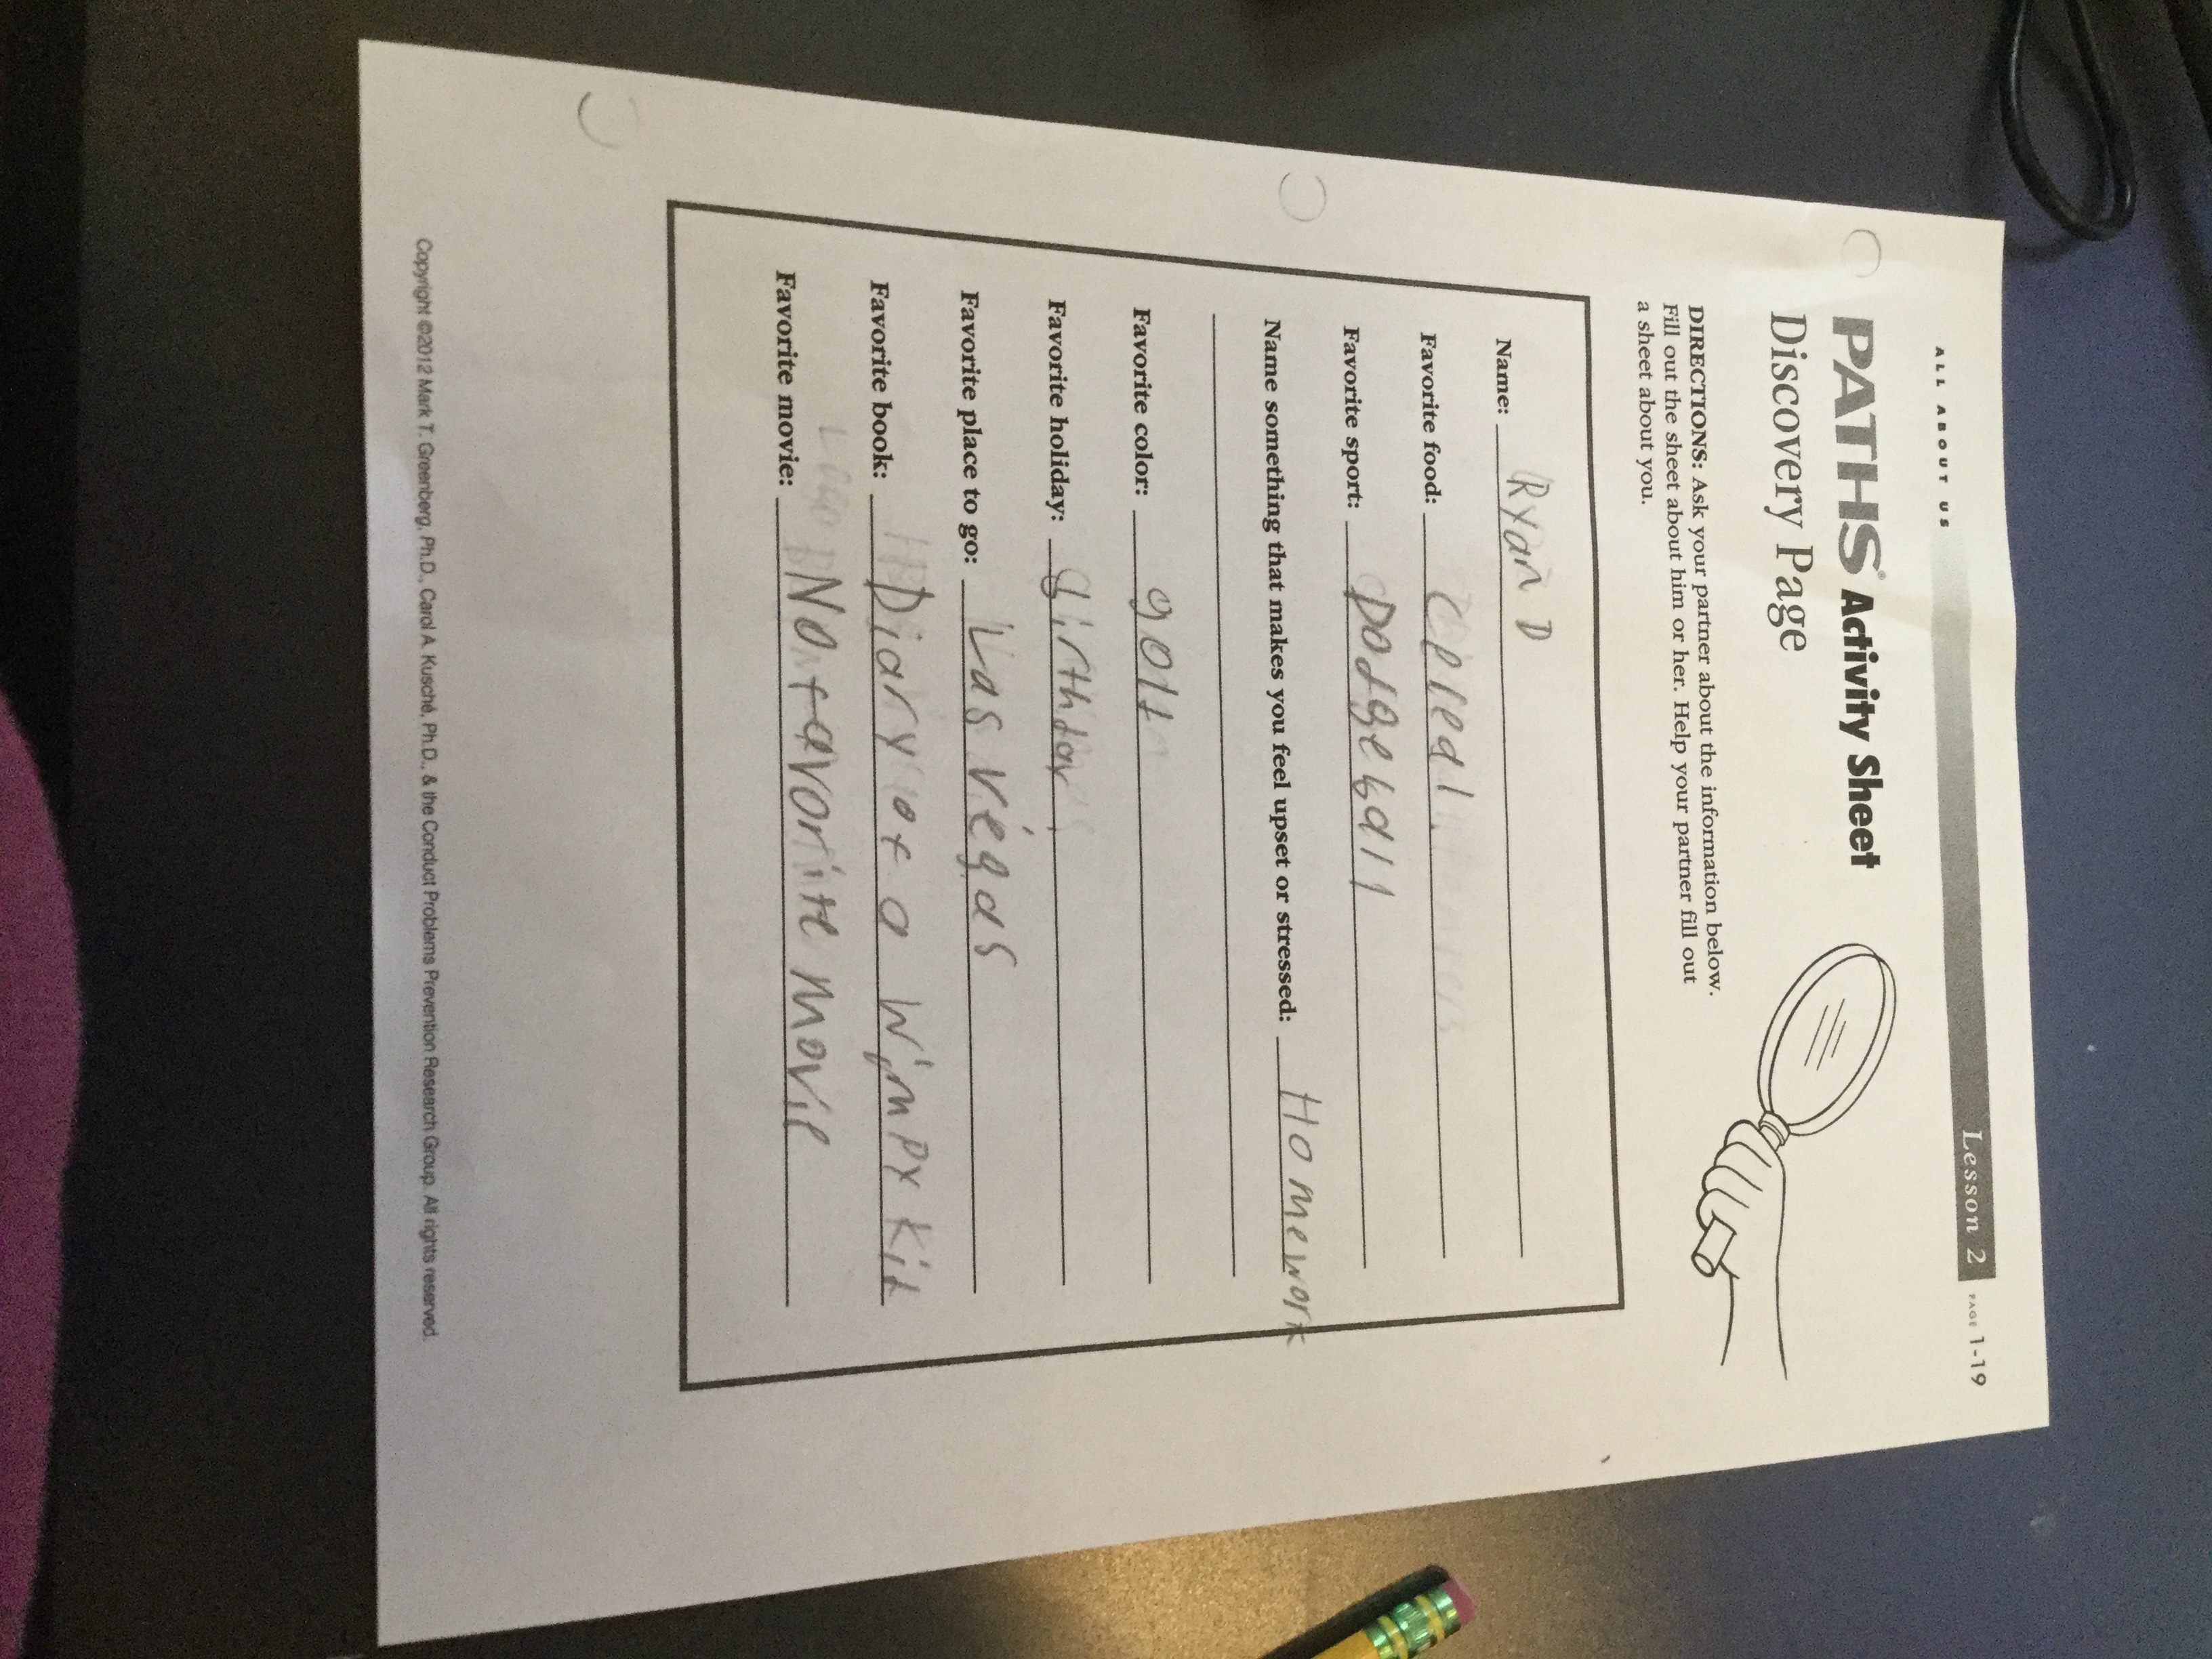 Lesson 2 PAGE 1-19
ALL ABOUT US
PATHS® Activity Sheet
Discovery Page
DIRECTIONS: Ask your partner about the information below.
Fill out the sheet about him or her. Help your partner fill out
a sheet about you.
Name: Ryan D
Favorite food: Cereal
Favorite sport: Dodgeball
Name something that makes you feel upset or stressed: Homework
Favorite color: gold
Favorite holiday: Birthday
Favorite place to go: Las Vegas
Favorite book: Diary of a Wimpy Kid
Favorite movie: No favorite movie
Copyright ©2012 Mark T. Greenberg, Ph.D., Carol A. Kusché, Ph.D., & the Conduct Problems Prevention Research Group. All rights reserved.